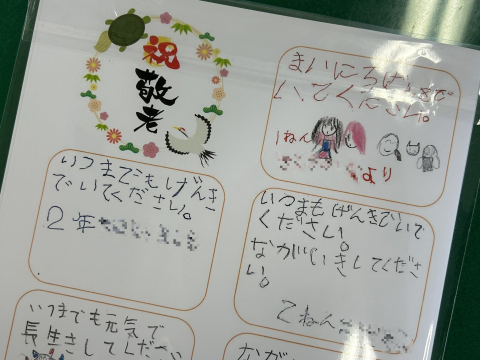 祝
敬老
まいにちげんきで
いてください。
1ねん
より
いつまでもげんき
でいてください。
2年
いつまもげんきでいで
ください。
ながいきしてくださ
い。
2ねん
いつまでも元気で
長生きしてしだ〜
なが